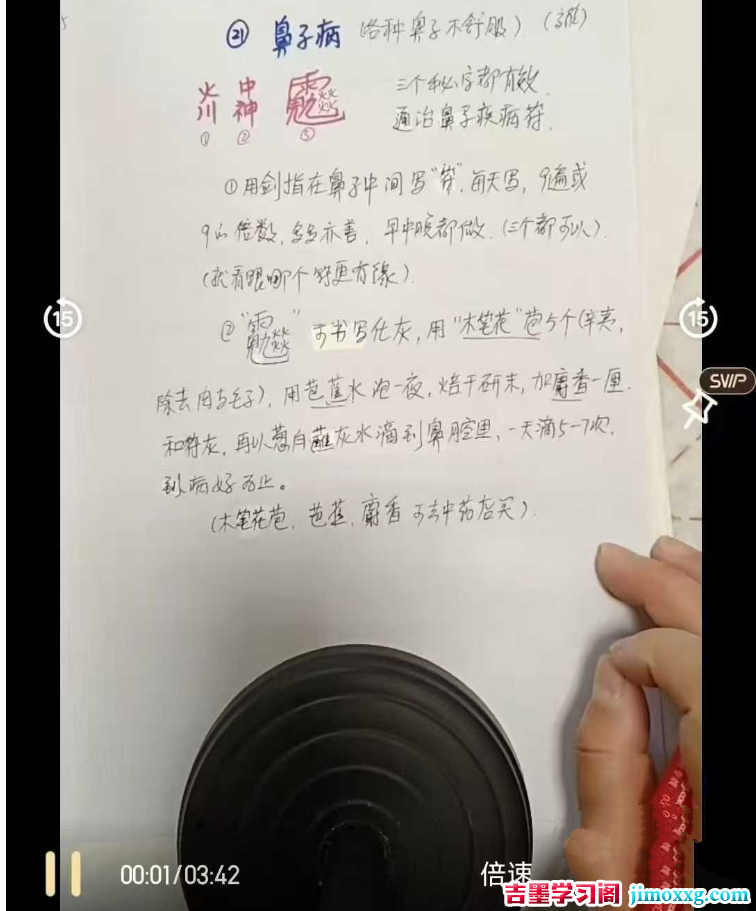 ㉑ 鼻子病 (各种鼻子不舒服)
火川 中神 三个秘字都有效.
① ② ③ 通治鼻子疾病符.
①用剑指在鼻子中间写“符”,每天写,9遍或
9的倍数,多多亦善,早中晚都做.(三个都可以).
(就看跟哪个符更有缘).
② 可书写化灰,用“木笔花”苞5个(辛夷,
除去肉与毛子),用芭蕉水泡一夜,焙干研末,加麝香一厘.
和符灰,再以葱白蘸灰水滴到鼻腔里,一天滴5-7次,
到病好为止。
(木笔花苞,芭蕉,麝香可去中药店买).
15
15
SVIP
00:01/03:42
倍速
吉墨学习阁 jimoxxg.com